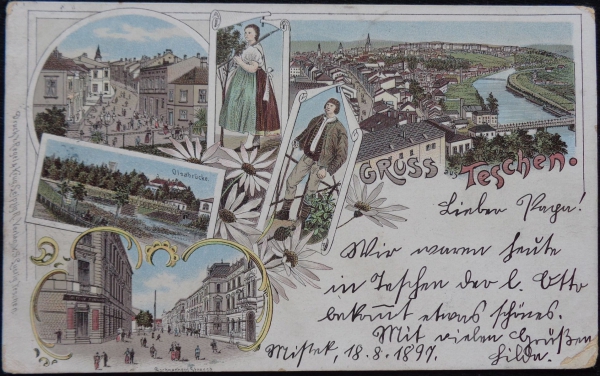 Olsabrücke.
GRUSS aus TESCHEN.
Lieber Papa!
Wir waren heute
in Teschen der l. Otto
bekommt etwas schönes.
Mit vielen Grüßen
Mistek, 18.8.1897. Hilda.